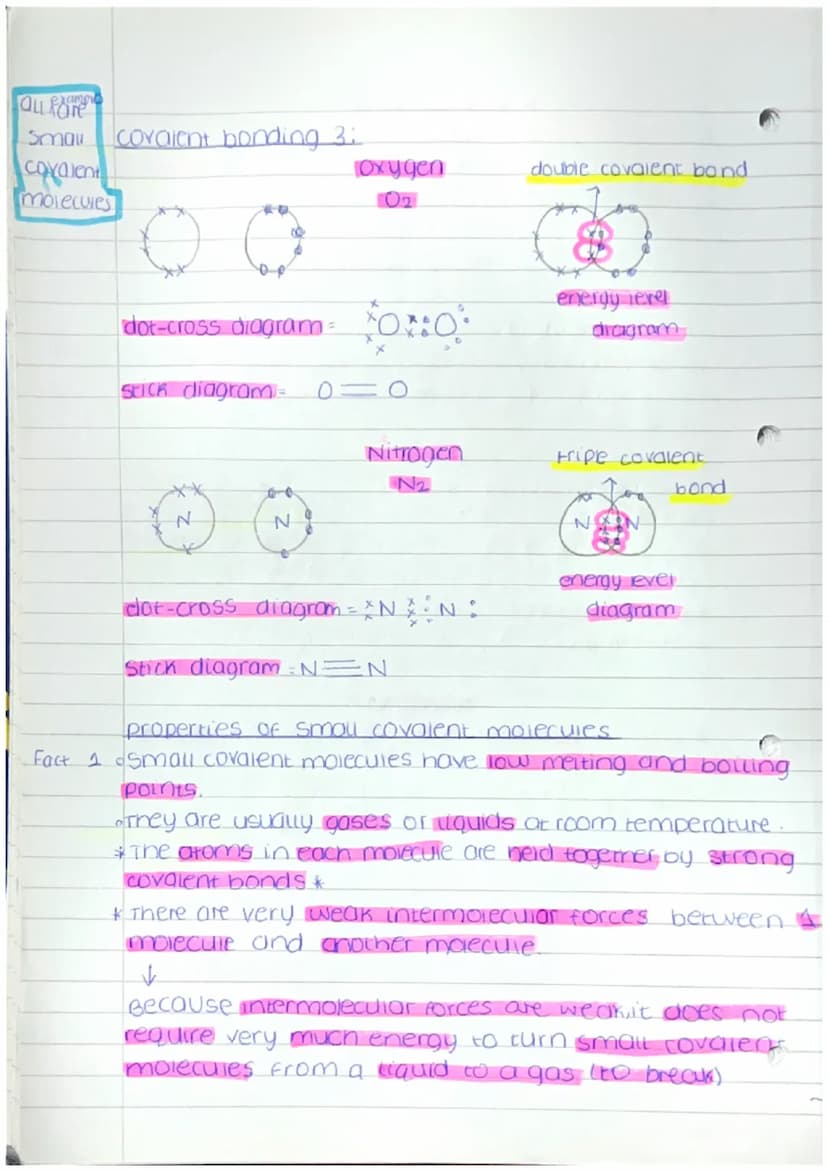 All examples are
small
covalent
molecules
covalent bonding 3:
oxygen
O2
double covalent bond
energy level
diagram
dot-cross diagram = O O
stick diagram = O = O
Nitrogen
N2
triple covalent
bond
N N
N N
energy level
diagram
dot-cross diagram = N N
stick diagram = N ≡ N
properties of small covalent molecules
Fact 1 Small covalent molecules have low melting and boiling
points.
They are usually gases or liquids at room temperature.
* The atoms in each molecule are held together by strong
covalent bonds *
* There are very weak intermolecular forces between 1
molecule and another molecule.
↓
Because intermolecular forces are weak, it does not
require very much energy to turn small covalent
molecules from a liquid to a gas (to break)